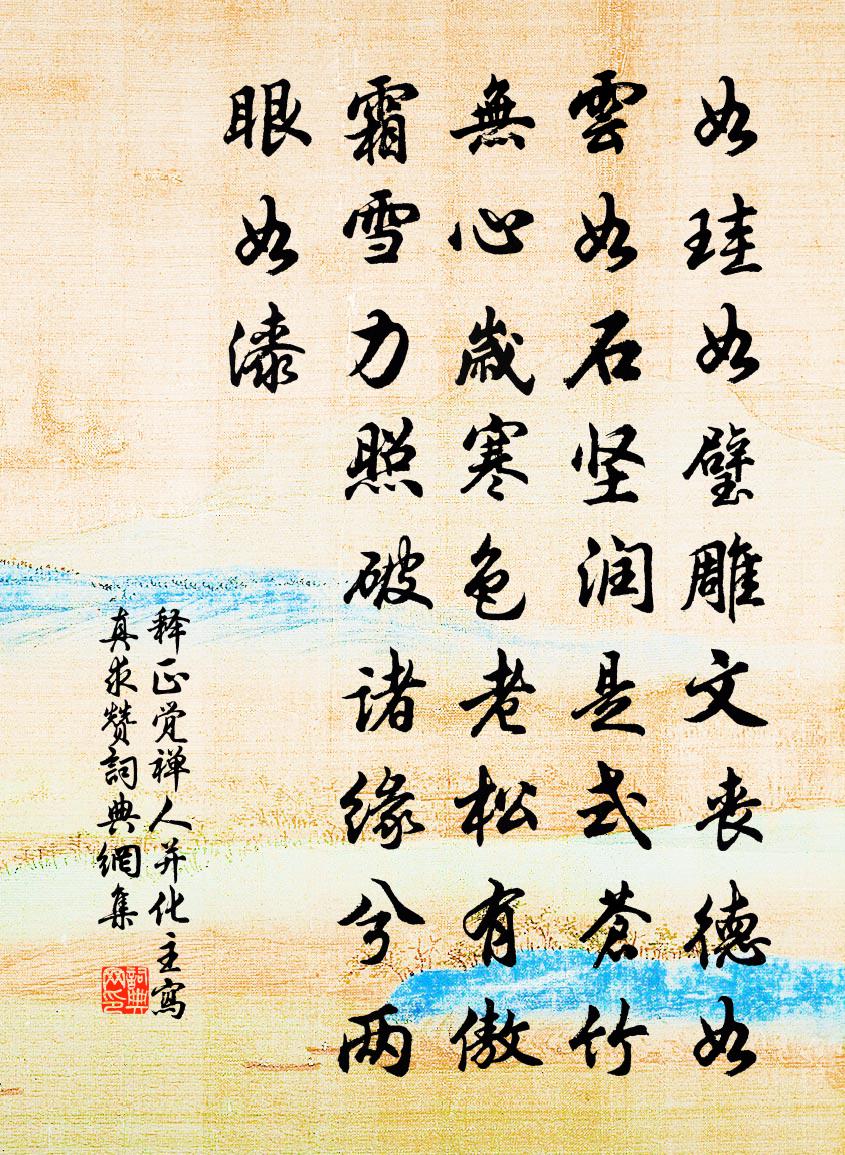 如珪如璧雕文丧德如
雲如石坚润是式苍竹
無心歳寒色老松有傲
霜雪力照破诸缘兮两
眼如漆
释正觉禅人并化主寫
真求赞詞典網集
詞典
网印